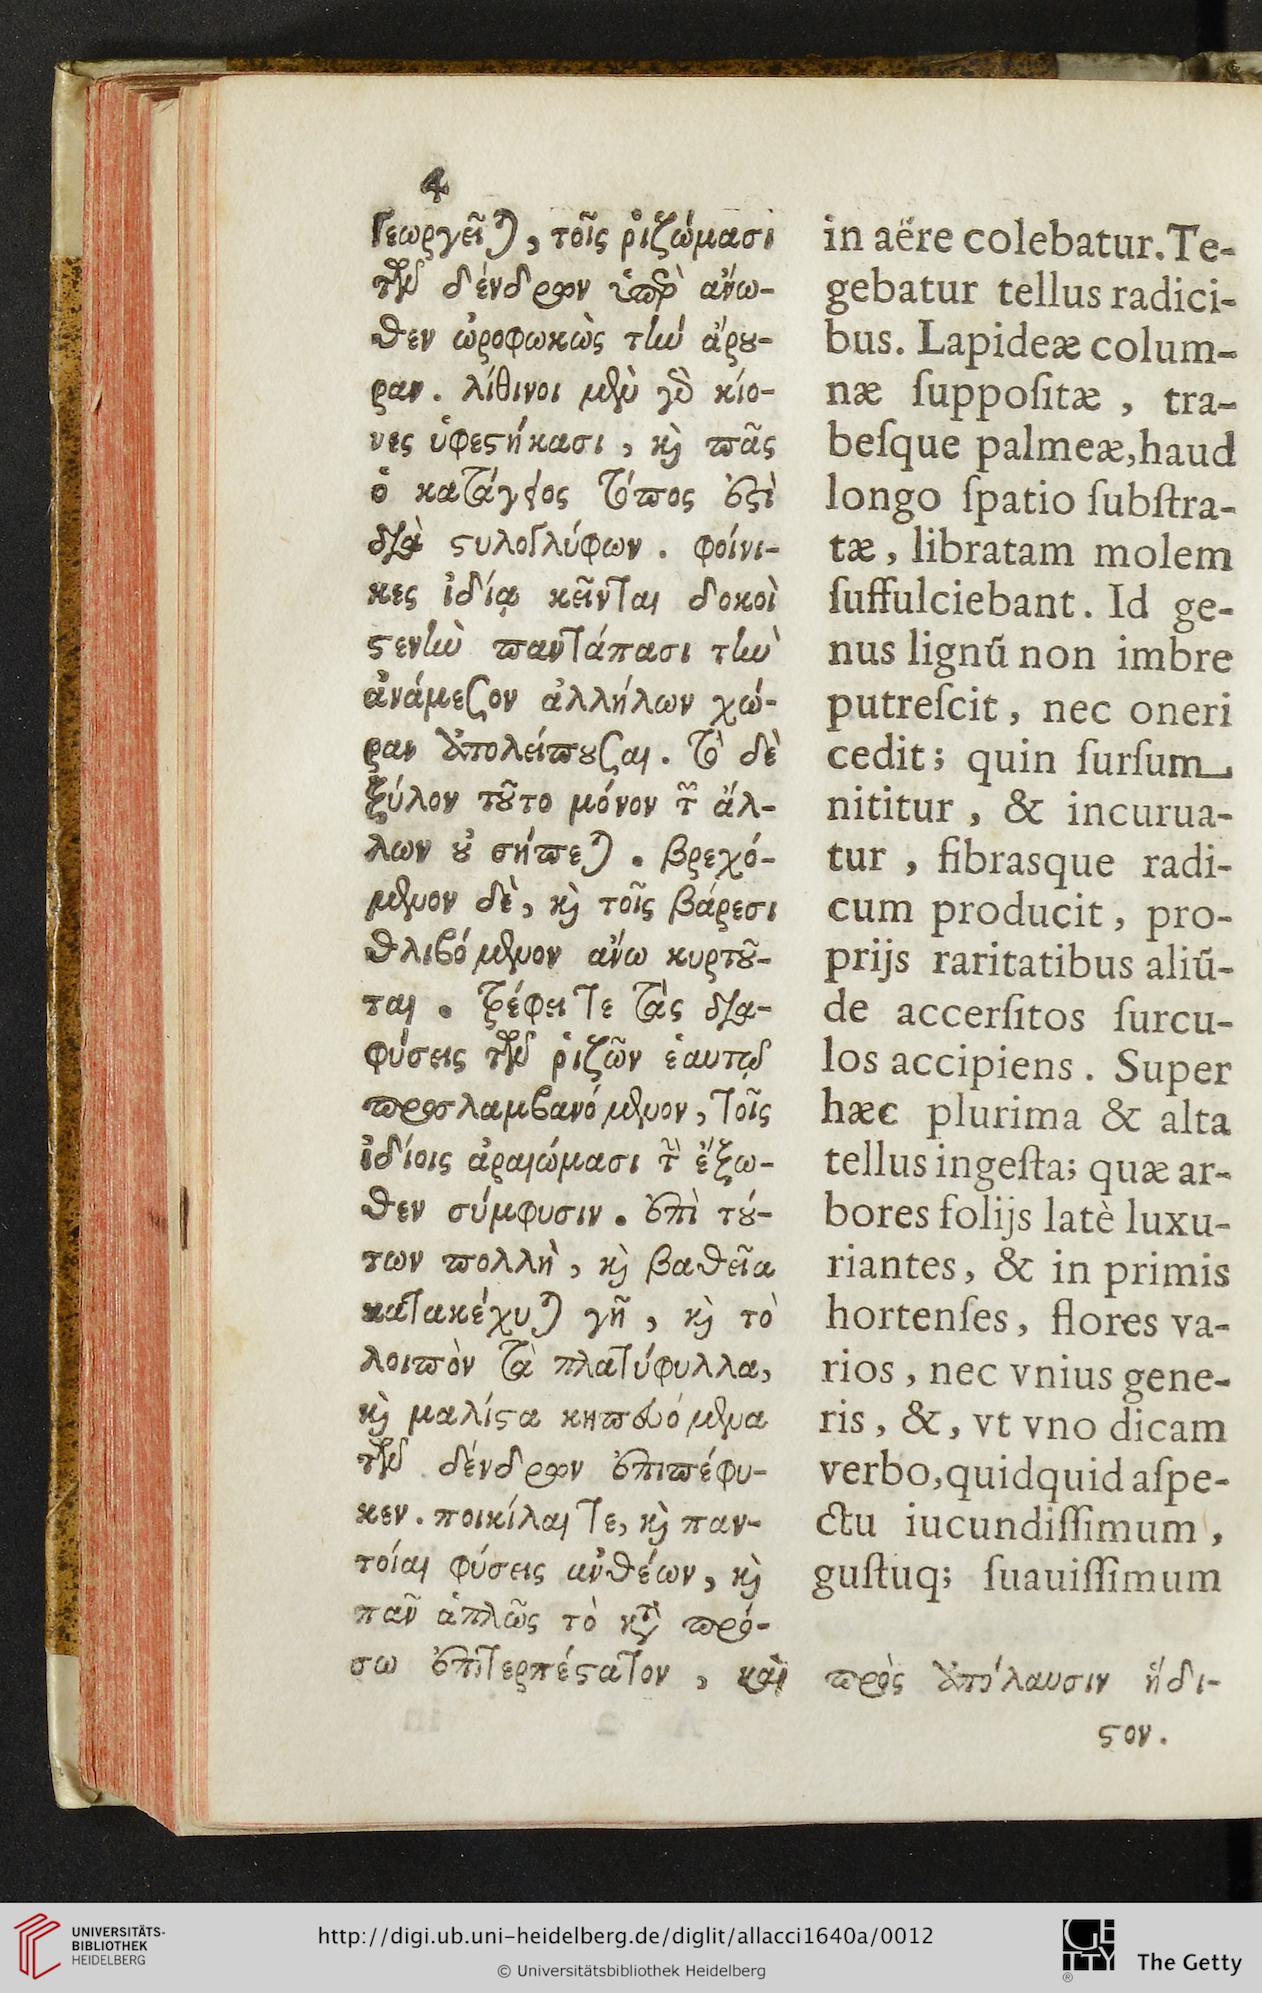 4
Γεωργεῖται, τοῖς ῥιζώμασι
τῶν δένδρων ὑπὲρ ἄνω-
θεν ὠροφωκὼς τὴν ἄρου-
ραν. λίθινοι μὲν γὸ κίο-
νες ὑφεστήκασι, καὶ πᾶς
ὁ κατάγειος τόπος ἐστὶ
διὰ στυλογλύφων. φοίνι-
κες ἰδίᾳ κεῖνται δοκοὶ
στενὴν παντάπασι τὴν
ἀνάμεσον ἀλλήλων χώ-
ραν ἀπολείπουσαι. τὸ δὲ
ξύλον τοῦτο μόνον τῶν ἄλ-
λων οὐ σήπεται. βρεχό-
μενον δὲ, καὶ τοῖς βάρεσι
θλιβόμενον ἄνω κυρτοῦ-
ται. τρέφει τε τὰς δια-
φύσεις τῶν ῥιζῶν ἑαυτῷ
προσλαμβανόμενον, τοῖς
ἰδίοις ἀραιώμασι τὴν ἔξω-
θεν σύμφυσιν. ἐπὶ τού-
των πολλὴ, καὶ βαθεῖα
κατακέχυται γῆ, καὶ τὸ
λοιπὸν τὰ πλατύφυλλα,
καὶ μαλίστα κηπευόμενα
τῶν δένδρων ἐπιπέφυ-
κεν. ποικίλαι τε, καὶ παν-
τοίαι φύσεις ἀνθέων, καὶ
πᾶν ἁπλῶς τὸ κτ πρό-
σω ἐπιτερπέστατον, καὶ πρὸς ἀπόλαυσιν ἥδι-
στον.
in aëre colebatur. Te-
gebatur tellus radici-
bus. Lapideæ colum-
næ ſuppoſitæ, tra-
beſque palmeæ, haud
longo ſpatio ſubſtra-
tæ, libratam molem
ſuffulciebant. Id ge-
nus lignū non imbre
putreſcit, nec oneri
cedit; quin ſurſum
nititur, & incurua-
tur, fibrasque radi-
cum producit, pro-
prijs raritatibus aliū-
de accerſitos ſurcu-
los accipiens. Super
hæc plurima & alta
tellus ingeſta; quæ ar-
bores folijs latè luxu-
riantes, & in primis
hortenſes, flores va-
rios, nec vnius gene-
ris, &, vt vno dicam
verbo, quidquid aſpe-
ctu iucundiſſimum,
guſtuq; ſuauiſſimum
UNIVERSITÄTS-
BIBLIOTHEK
HEIDELBERG
http://digi.ub.uni-heidelberg.de/diglit/allacci1640a/0012
© Universitätsbibliothek Heidelberg
GETTY
The Getty